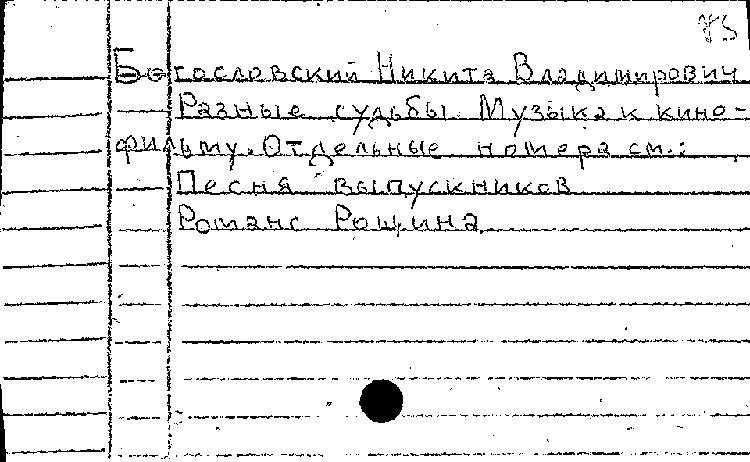 Богословский Никита Владимирович
Разные судьбы. Музыка к кино-
фильму. Отдельные номера см.:
Песня выпускников
Романс Рощина